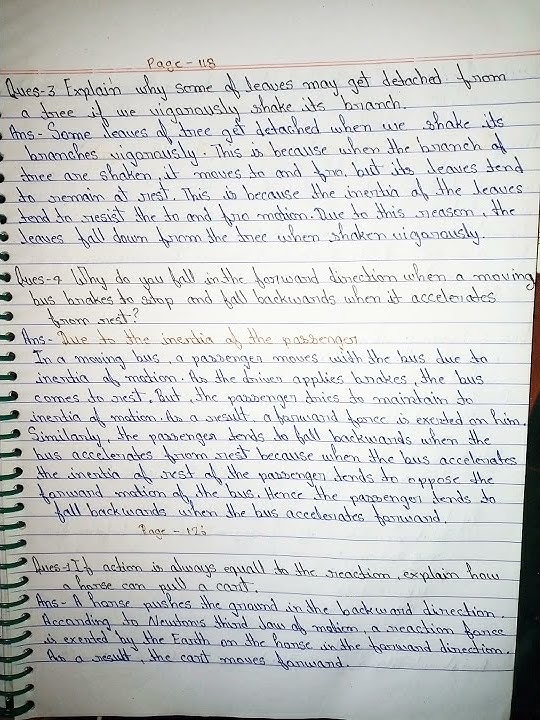 Page - 118
Ques-3 Explain why some of leaves may get detached from
a tree if we vigorously shake its branch.
Ans - Some leaves of tree get detached when we shake its
branches vigorously. This is because when the branch of
tree are shaken, it moves to and fro, but its leaves tend
to remain at rest. This is because the inertia of the leaves
tend to resist the to and fro motion. Due to this reason, the
leaves fall down from the tree when shaken vigorously.
Ques-4 Why do you fall in the forward direction when a moving
bus brakes to stop and fall backwards when it accelerates
from rest?
Ans - Due to the inertia of the passenger
In a moving bus, a passenger moves with the bus due to
inertia of motion. As the driver applies brakes, the bus
comes to rest. But, the passenger tries to maintain to
inertia of motion. As a result, a forward force is exerted on him.
Similarly, the passenger tends to fall backwards when the
bus accelerates from rest because when the bus accelerates
the inertia of rest of the passenger tends to oppose the
forward motion of the bus. Hence the passenger tends to
fall backwards when the bus accelerates forward.
Page -
Ques-1 If action is always equall to the reaction, explain how
a horse can pull a cart.
Ans - A horse pushes the ground in the backward direction.
According to Newton's third law of motion, a reaction force
is exerted by the Earth on the horse in the forward direction.
As a result, the cart moves forward.